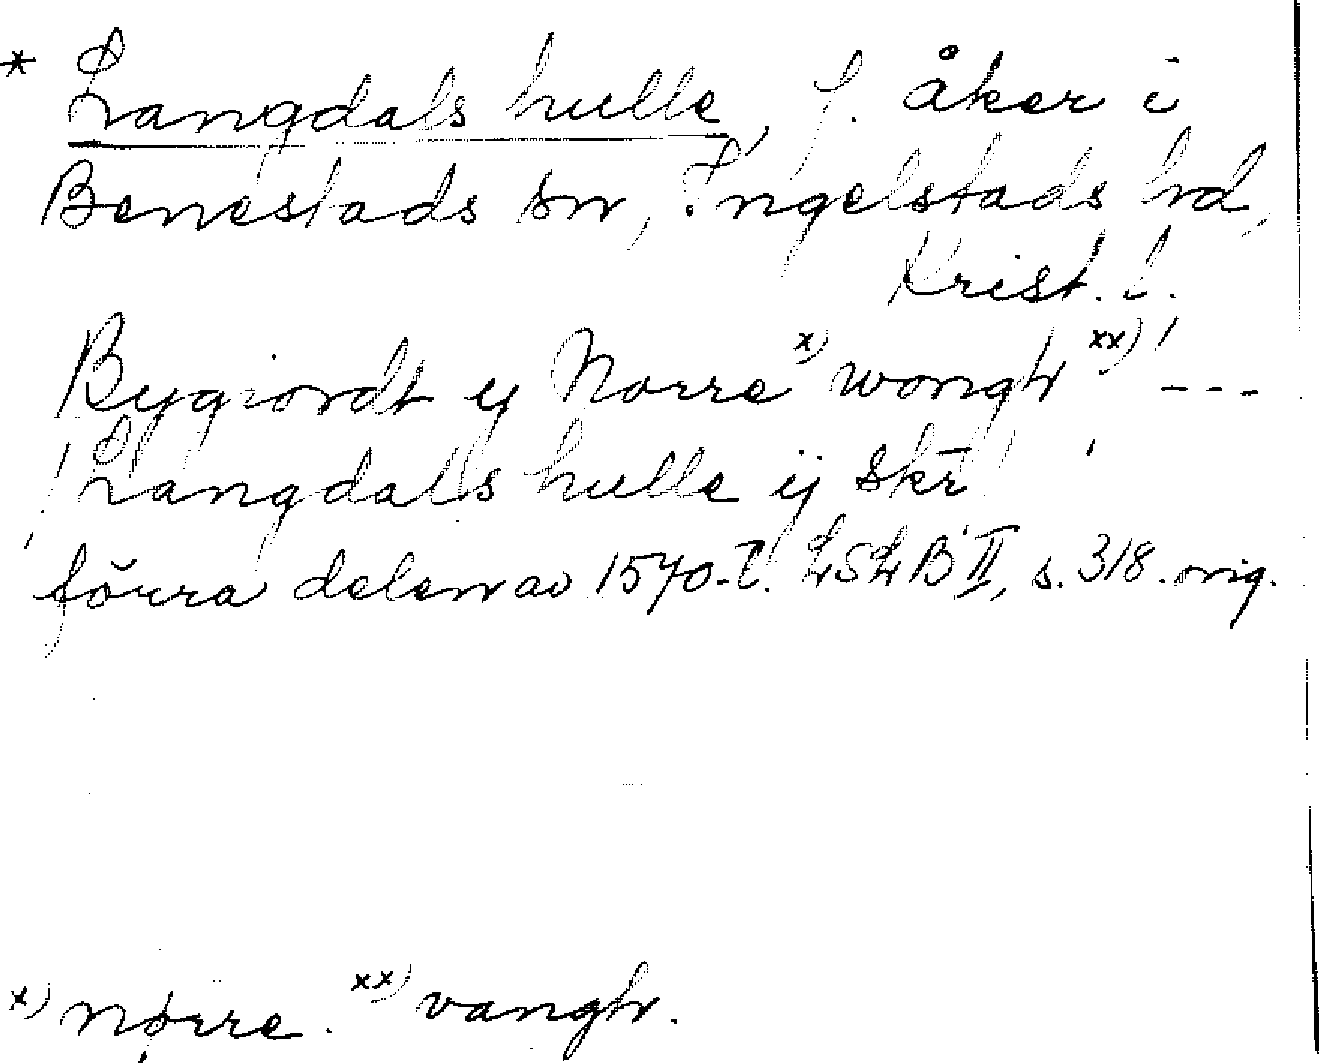 * Langdals hulle, f. åker i
Benestads sn, Ingelstads hd,
Krist. l.
Bygiordt ij Norre x) wongh xx) ---
Langdals hulle ij skr
förra delen av 1570-t. LSLB II, s. 318. orig.
x) nørre. xx) vangh.